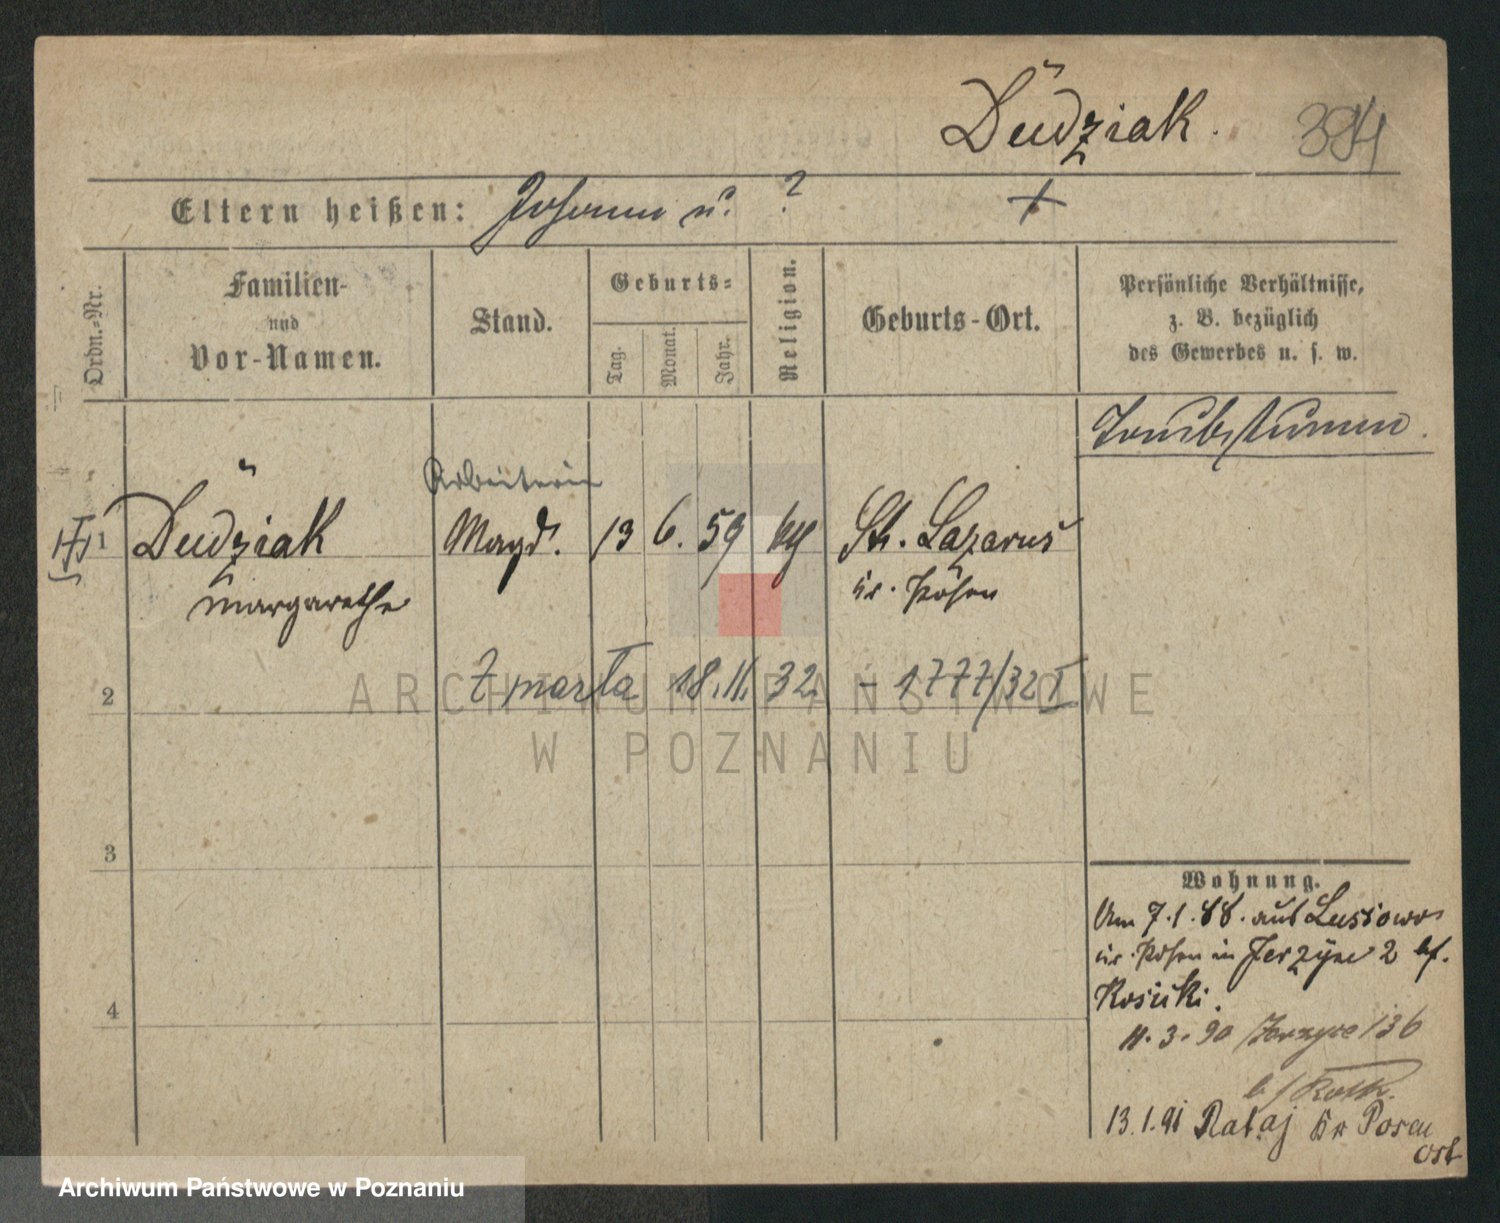 Dudziak.
394
Eltern heißen: Johann u. ?
+
Ordn.-Nr.
Familien-
und
Vor-Namen.
Stand.
Geburts-
Tag.
Monat.
Jahr.
Religion.
Geburts-Ort.
Persönliche Verhältnisse,
z. B. bezüglich
des Gewerbes u. s. w.
Taubstumm.
Arbeiterin
1 Dudziak Magd. 13 6. 59 kth St. Lazarus
Margarethe Kr. Posen
2 Zmarła 18.11.32 - 1777/32 I
3
4
Wohnung.
Am 7.1.88. aus Lussowo
Kr. Posen in Jerzyce 2 bf.
Kosicki.
11.3.90 Jerzyce 136
b/Roth.
13.1.91 Rataj Kr Posen
Ost
ARCHIWUM PAŃSTWOWE
W POZNANIU
Archiwum Państwowe w Poznaniu